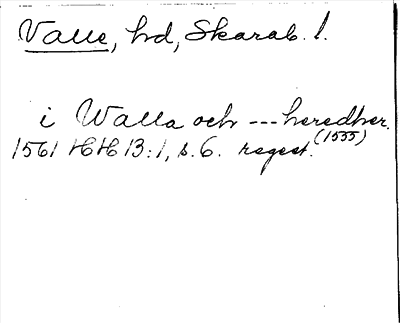 Valle, hd, Skarab. l.
i Walla och --- heredher.
1561 HH 13:1, s. 6. regest. (1555)